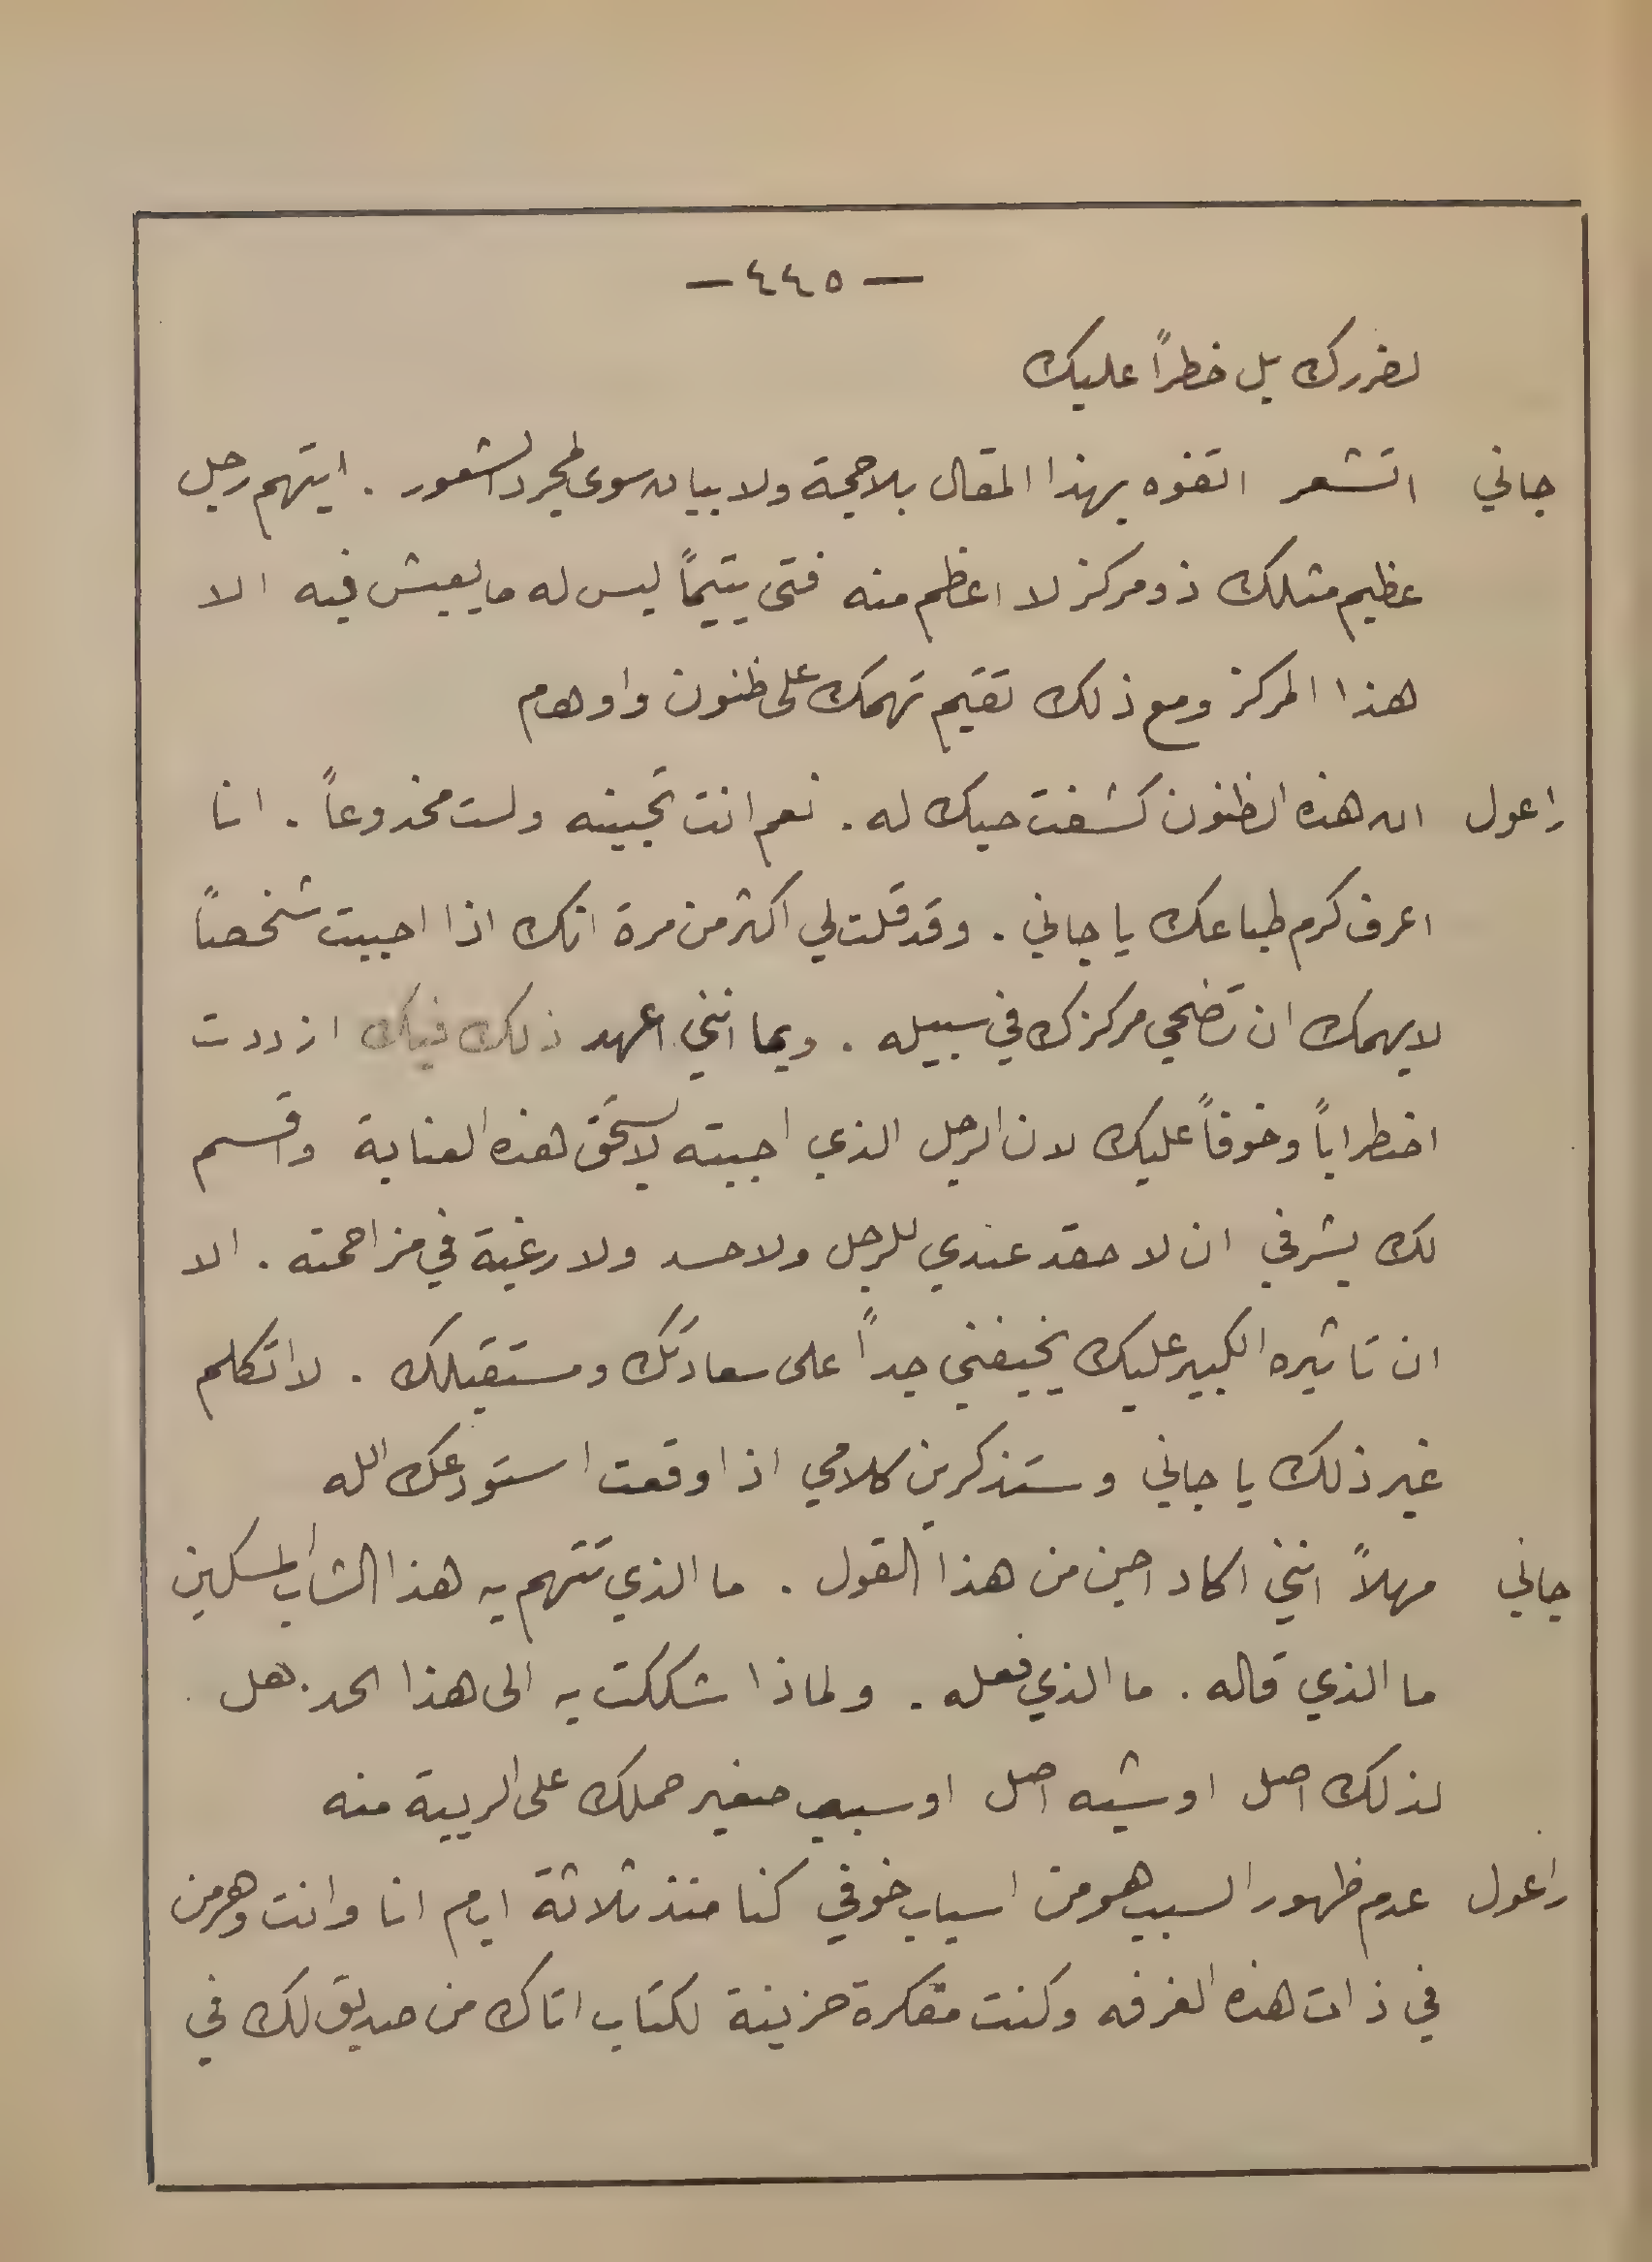 — ٤٤٥ —
لضررك بل خطراً عليك
جاني اتشعر اتفوه بهذا المقال بلا حجة ولا بيان سوى لمجرد الشعور . ايتهم رجل
عظيم مثلك ذو مركز لا اعظم منه فتى يتيماً ليس له ما يعيش فيه الا
هذا المركز ومع ذلك تقيم تهمك على ظنون واوهام
راعول ان هذه الظنون كشفت حبك له . نعم انت تحبينه ولست مخدوعاً . انا
اعرف كرم طباعك يا جاني . وقد قلت لي اكثر من مرة انك اذا احببت شخصاً
لا يهمك ان تضحي مركزك في سبيله . وبما انني اعهد ذلك فيك ازددت
اضطراباً وخوفاً عليك لان الرجل الذي احببته لا يستحق هذه العناية واقسم
لك بشرفي ان لا حقد عندي للرجل ولا حسد ولا رغبة في مزاحمته . الا
ان تاثيره الكبير عليك يخيفني جداً على سعادتك ومستقبلك . لا اتكلم
غير ذلك يا جاني وستذكرين كلامي اذا وقعت استودعك الله
جاني مهلاً انني اكاد اجن من هذا القول . ما الذي تتهم به هذا الشاب المسكين
ما الذي قاله . ما الذي فعله . ولماذا شككت به الى هذا الحد . هل
لذلك اصل او شبه اصل او سبب صغير حملك على الريبة منه
راعول عدم ظهور السبب هو من اسباب خوفي كنا منذ ثلاثة ايام انا وانت وهرمن
في ذات هذه الغرفه وكنت مفكرة حزينة لكتاب اتاك من صديق لك في